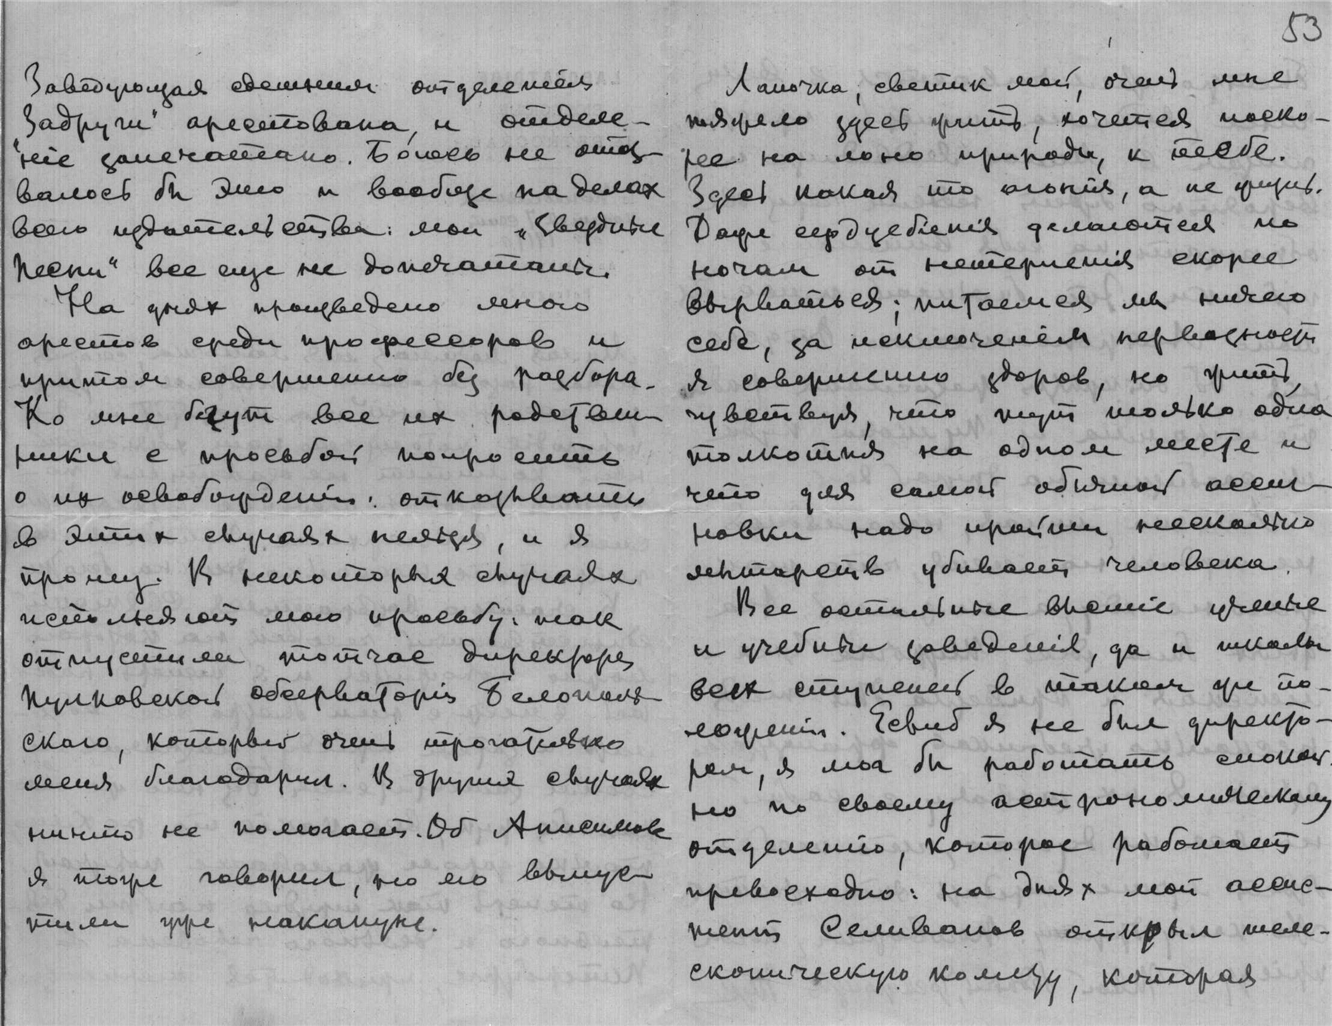 53
Заведующая здешним отделенiем
"Задруги" арестована, и отделе-
нiе запечатано. Боюсь не отоз-
валось бы это и вообще на делах
всего издательства: мои „Звездные
песни“ все еще не допечатаны.
На днях произведено много
арестов среди профессоров и
притом совершенно без разбора.
Ко мне бегут все их родствен-
ники с просьбой попросить
о их освобожденiи: отказывать
в этих случаях нельзя, и я
прошу. В некоторых случаях
исполняют мою просьбу: так
отпустили тотчас директора
Пулковской обсерваторiи Белополь-
скаго, который очень трогательно
меня благодарил. В других случаях
ничто не помогает. Об Анисимове
я тоже говорил, но его выпус-
тили уже накануне.
Лапочка, светик мой, очень мне
тяжело здесь жить, хочется поско-
рее на лоно природы, к тебе.
Здесь какая то агонiя, а не жизнь.
Даже сердцебiенiя делаются по
ночам от нетерпенiя скорее
вырваться; питаемся мы ничего
себе, за исключенiем нервозности
я совершенно здоров, но жить,
чувствуя, что тут только одна
толкотня на одном месте и
что для самой обычной ассиг-
новки надо пройти несколько
мытарств убивает человека.
Все остальные высшiе ученые
и учебные заведенiя, да и школы
всех ступеней в таком же по-
ложенiи. Еслиб я не был директо-
ром, я мог бы работать спокой-
но по своему астрономическому
отделенiю, которое работает
превосходно: на днях мой ассис-
тент Селиванов открыл теле-
скопическую комету, которая